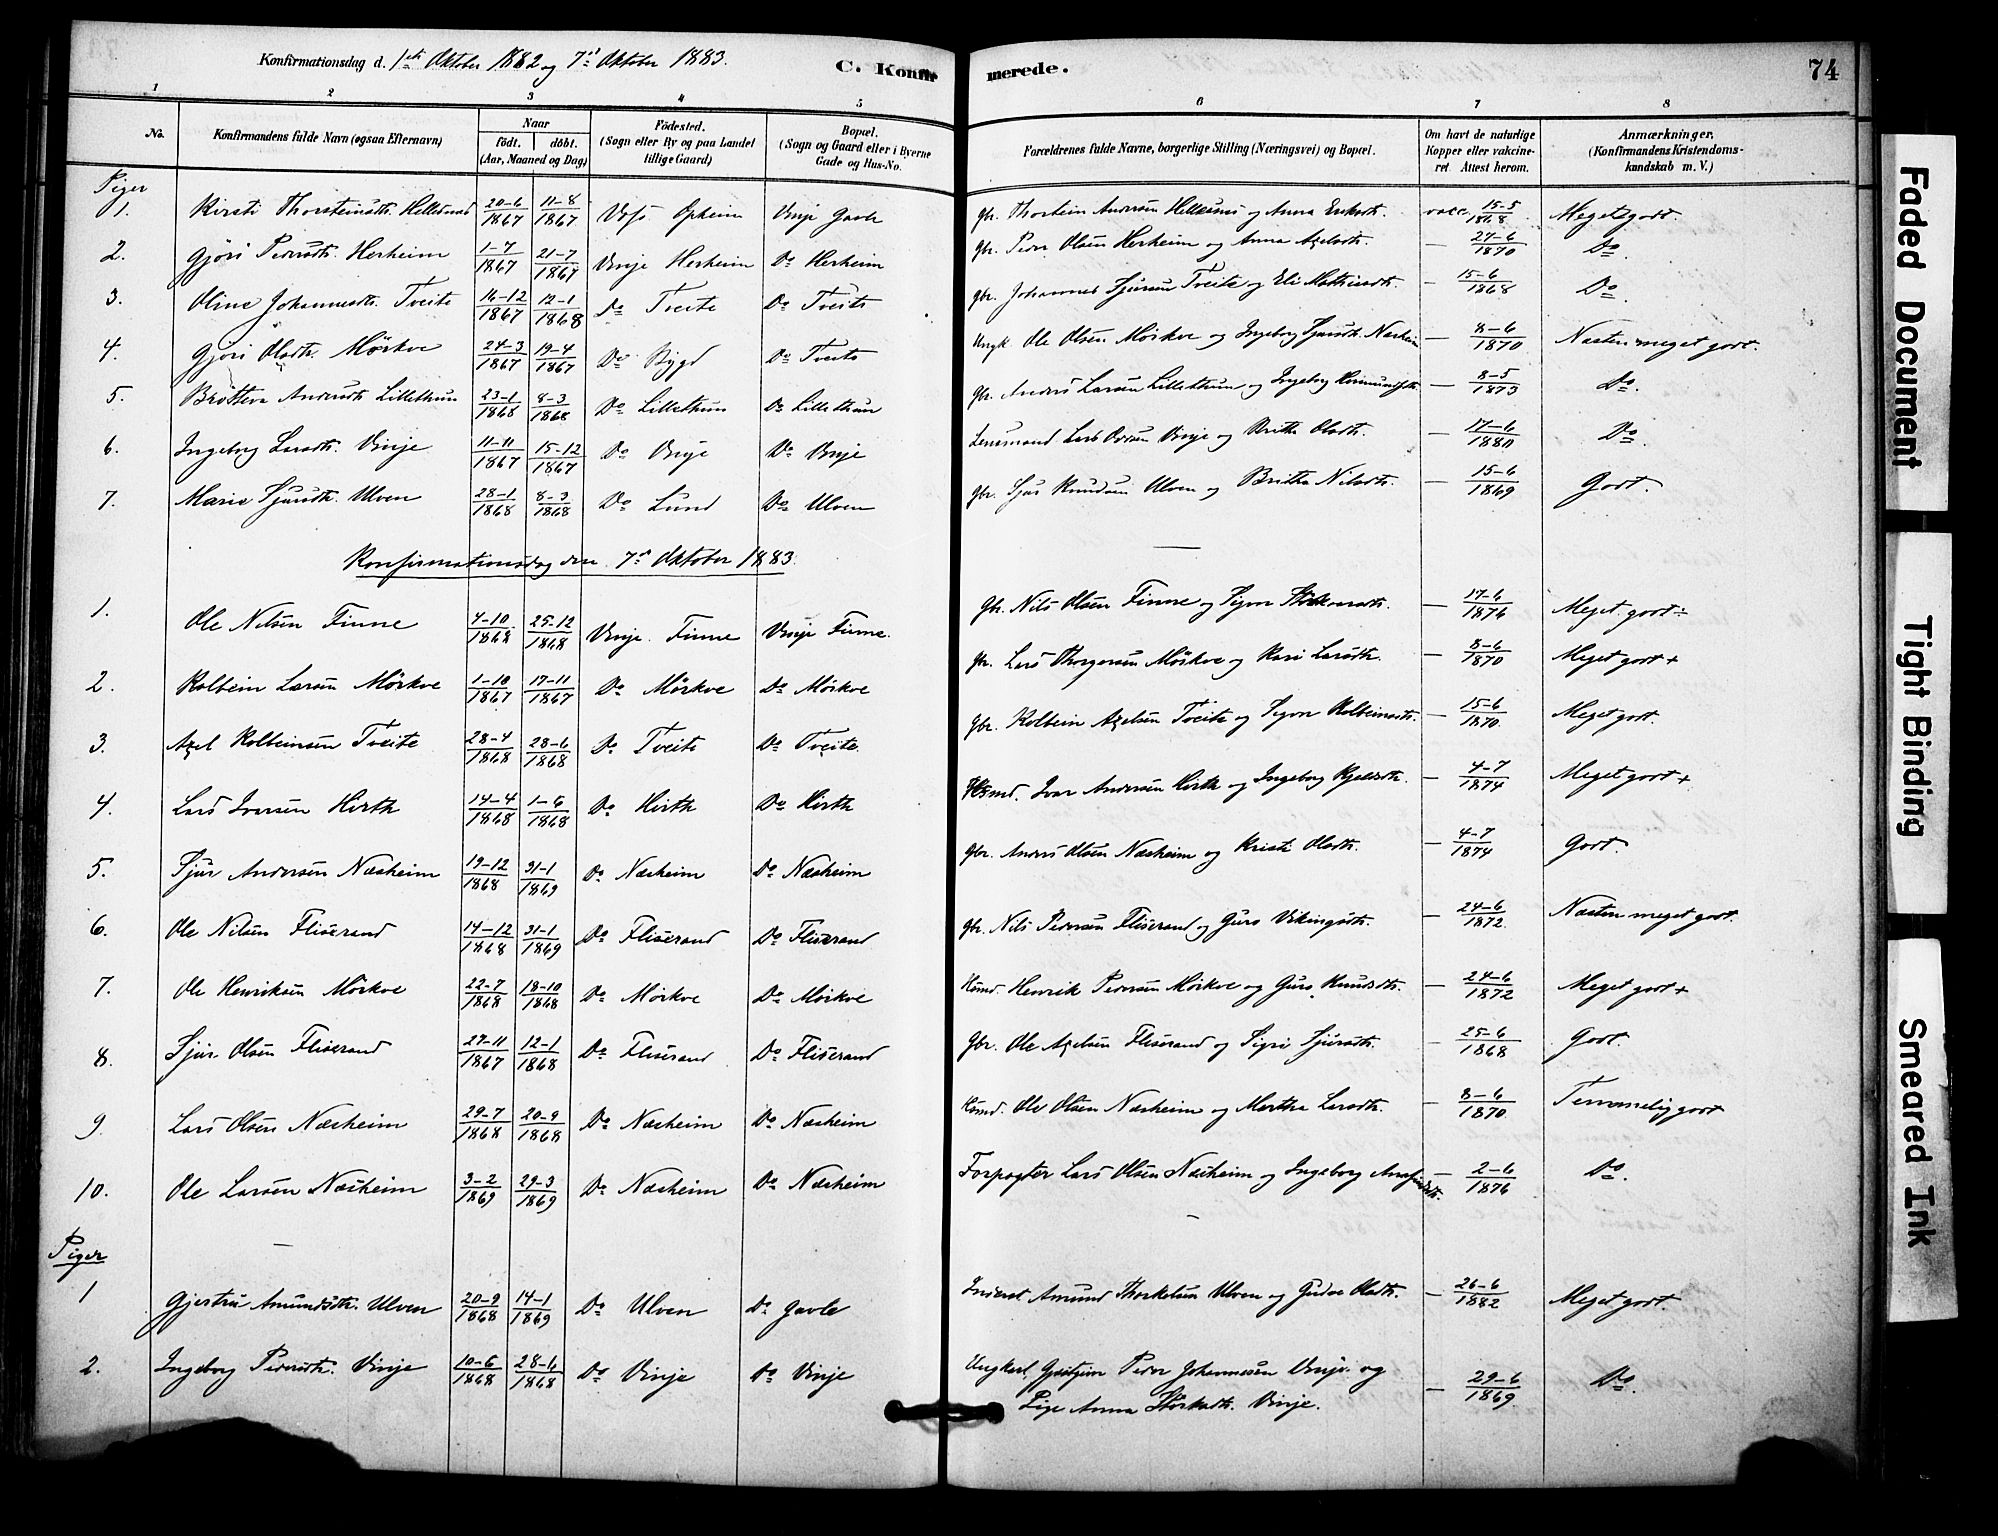 Konfirmationsdag d. 1ste Oktober 1882 og 7de Oktober 1883. C. Konfirmerede. 74
1 2 3 4 5 6 7 8
No. Konfirmandens fulde Navn (ogsaa Efternavn) Naar födt. döbt. (Aar, Maaned og Dag) Födested. (Sogn eller By og paa Landet tillige Gaard) Bopæl. (Sogn og Gaard eller i Byerne Gade og Hus-No. Forældrenes fulde Navne, borgerlige Stilling (Næringsvei) og Bopæl. Om havt de naturlige Kopper eller vakcineret Attest herom. Anmærkninger. (Konfirmandens Kristendomskundskab m. V.)
Piger
1. Kirsti Thorsteinsdtr. Hellesnes 20-6 1867 11-8 1867 Voss Opheim Vinje Gavle gbr. Thorstein Andersen Hellesnes og Anna Eriksdtr. vacc. 15-5 1868 Meget godt
2. Gjöri Pedersdtr. Herheim 1-7 1867 21-7 1867 Vinje Herheim Do Herheim gbr. Peder Olsen Herheim og Anna Axelsdtr. — 24-6 1870 Do.
3. Oline Johannesdtr. Tveite 16-12 1867 12-1 1868 Do Tveite Do Tveite gbr. Johannes Sjursen Tveite og Eli Mathisdtr. — 15-6 1868 Do.
4. Gjöri Olsdtr. Mörkve 24-3 1867 19-4 1867 Do Bygd Do Tveite Ungk. Ole Olsen Mörkve og Ingeborg Sjursdtr. Næsheim — 8-6 1870 Næsten meget godt.
5. Andersdtr. Lillethun 23-1 1868 8-3 1868 Do Lillethun Do Lillethun gbr. Anders Larsen Lillethun og Ingeborg — 8-5 1873 Do.
6. Ingeborg Larsdtr. Vinje 11-11 1867 15-12 1867 Do Vinje Do Vinje Lensmand Lars Vinje og Britha Olsdtr. — 17-6 1880 Do.
7. Marie Sjursdtr. Ulven 28-1 1868 8-3 1868 Do Lund Do Ulven gbr. Sjur Knudsen Ulven og Britha Nilsdtr. — 15-6 1869 Godt.
Konfirmationsdag den 7de Oktober 1883.
1. Ole Nilsen Finne 4-10 1868 25-12 1868 Vinje Finne Vinje Finne. Gbr. Nils Olsen Finne og — 17-6 1876 Meget godt÷
2. Kolbein Larsen Mörkve 1-10 1867 17-11 1867 Do Mörkve Do Mörkve gbr. Lars Thorgersen Mörkve og Kari Larsdtr. — 8-6 1870 Meget godt+
3. Axel Kolbeinsen Tveite 28-4 1868 28-6 1868 Do Tveite Do Tveite. gbr. Kolbein Axelsen Tveite og Kolbeinsdtr. — 15-6 1870. Meget godt.
4. Lars Ivarsen Hirth 14-4 1868 1-6 1868 Do Hirth Do Hirth Husmd. Ivar Andersen Hirth og Ingeborg Kjelsdtr. — 4-7 1874 Meget godt+
5. Sjur Andersen Næsheim 19-12 1868 31-1 1869 Do Næsheim Do Næsheim gbr. Anders Olsen Næsheim og Kristi Olsdtr. — 4-7 1874 Godt.
6. Ole Nilsen Fliserand 14-12 1868 31-1 1869 Do Fliserand Do Fliserand gbr. Nils Pedersen Fliserand og Guro Vikingsdtr. — 24-6 1872. Næsten meget godt.
7. Ole Henriksen Mörkve 22-7 1868 18-10 1868 Do Mörkve Do Mörkve Husmd. Henrik Pedersen Mörkve og Guro Knudsdtr. — 24-6 1872 Meget godt+
8. Sjur Olsen Fliserand 27-11 1867 12-1 1868 Do Fliserand Do Fliserand Gbr. Ole Axelsen Fliserand og Sigri Sjursdtr. — 25-6 1868 Godt.
9. Lars Olsen Næsheim 29-7 1868 20-9 1868 Do Næsheim Do Næsheim Husmd. Ole Olsen Næsheim og Martha Larsdtr. — 8-6 1870. Temmelig godt
10. Ole Larsen Næsheim 3-2 1869 29-3 1869 Do Næsheim Do Næsheim Forpagter Lars Olsen Næsheim og Ingeborg — 2-6 1876 Do.
Piger
1 Gjertru Amundsdtr. Ulven 20-9 1868 14-1 1869 Do Ulven Do Gavle Inderst Amund Thorkelsen Ulven og Olsdtr. — 26-6 1882 Meget godt.
2. Ingeborg Pedersdtr. Vinje 10-6 1868 28-6 1868 Do Vinje Do Vinje Ungkarl Peder Johannesen Vinje og
Pige Anna Vinje. — 29-6 1869. Do.
Faded Document
Tight Binding
Smeared Ink